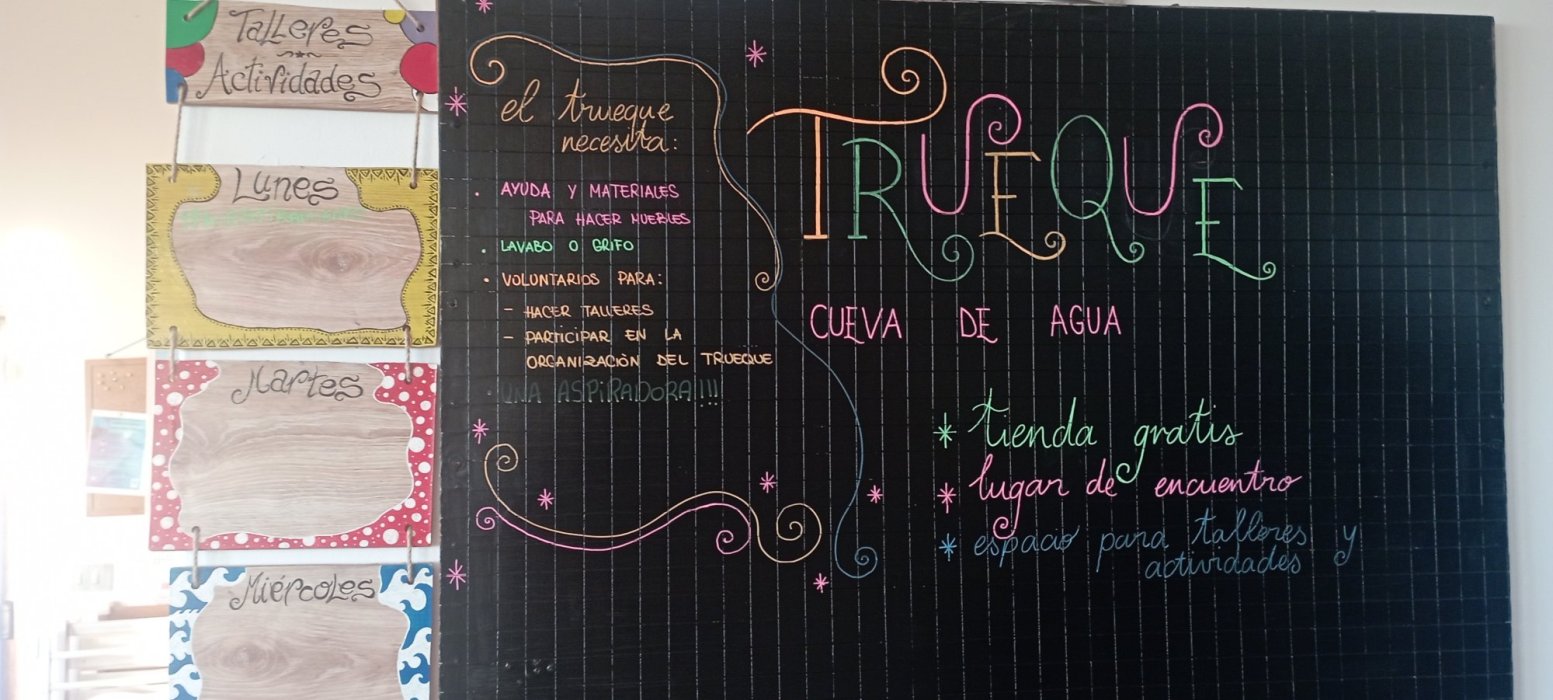 Talleres
Actividades
Lunes
Martes
Miércoles
el trueque
necesita:
. AYUDA Y MATERIALES
PARA HACER MUEBLES
. LAVABO O GRIFO
. VOLUNTARIOS PARA:
- HACER TALLERES
- PARTICIPAR EN LA
ORGANIZACIÓN DEL TRUEQUE
. UNA ASPIRADORA!!!
TRUEQUE
CUEVA DE AGUA
* tienda gratis
* lugar de encuentro
* espacio para talleres y
actividades